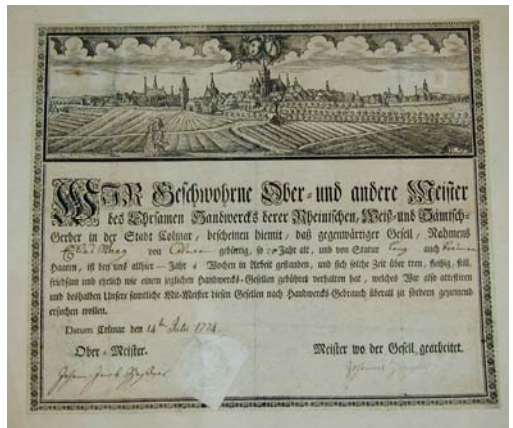 WIR Geschwohrne Ober- und andere Meister
des Ehrsamen Handwercks derer Rheinischen, Weiß- und Sämisch-
Gerber in der Stadt Colmar, bescheinen hiemit, daß gegenwärtiger Gesell, Nahmens
von gebürtig, so Jahr alt, und von Statur auch
Haaren, ist bey uns allhier Jahr 4 Wochen in Arbeit gestanden, und sich solche Zeit über treu, fleißig, still,
friedsam und ehrlich wie einem jeglichen Handwercks-Gesellen gebühret verhalten hat, welches Wir also attestiren
und deshalben Unsere samtliche Mit-Meister diesen Gesellen nach Handwercks-Gebrauch überall zu fördern geziemend
ersuchen wollen.
Datum Colmar den 14ten Julii
Ober-Meister. Meister wo der Gesell gearbeitet.
Johann Jacob
Johannes